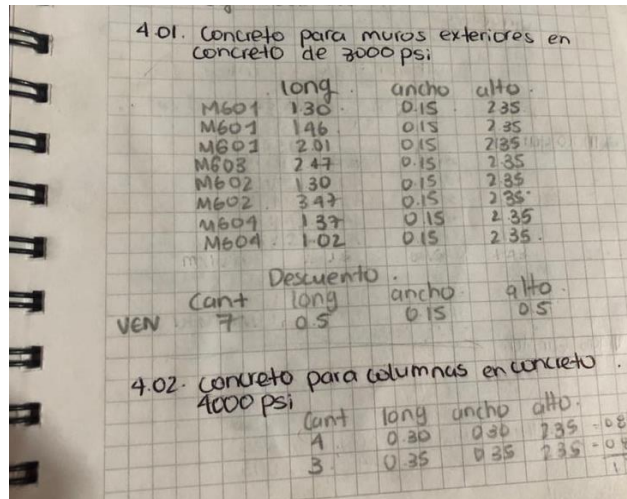 4.01. Concreto para muros exteriores en
concreto de 3000 psi
long. ancho alto.
M601 1.30. 0.15. 2.35
M601 1.46. 0.15 2.35
M601 2.01 0.15 2.35
M603 2.47 0.15 2.35
M602 1.30 0.15 2.35
M602 3.47 0.15 2.35.
M604 1.37 0.15 2.35
M604. 1.02 0.15 2.35.
Descuento.
Cant long ancho. alto.
VEN 7 0.5 0.15 0.5
4.02. Concreto para columnas en concreto.
4000 psi
Cant long ancho alto.
4 0.30 0.30 2.35
3 0.35 0.35 2.35